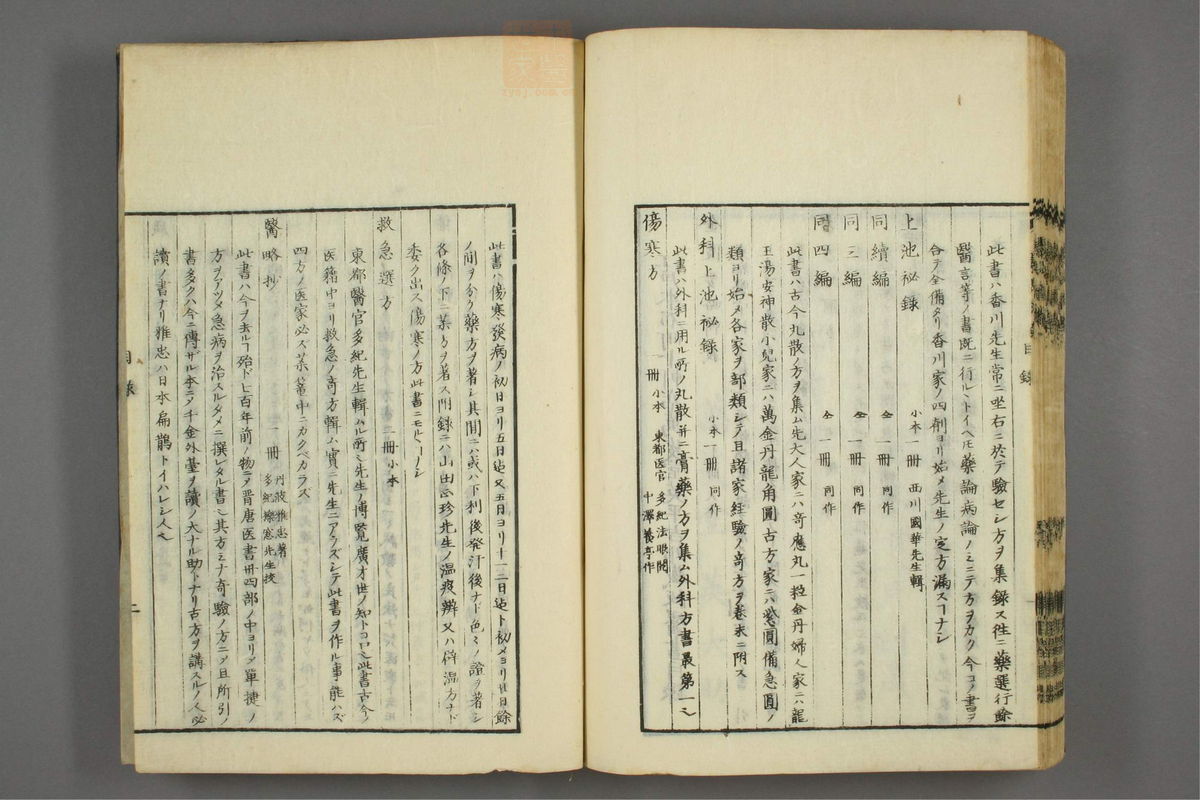 此書ハ香川先生常ニ坐右ニ於テ驗セシ方ヲ集録ス往ニ藥選行餘
醫言等ノ書既ニ行ルヽトイヘ𪜈藥論病論ノミニテ方ヲカク今コノ書ヲ
合テ全備タリ香川家ノ四劑ヨリ始メ先生ノ定方漏スヿナシ
上池祕録 小本一冊 西川國華先生輯
同續編 仝 一冊 同作
同三編 仝 一冊 同作
同四編 仝 一冊 同作
此書ハ古今丸散ノ方ヲ集ム先大人家ニハ奇應丸一粒金丹婦人家ニハ龍
王湯安神散小兒家ニハ萬金丹龍角圓古方家ニハ紫圓備急圓ノ
類ヨリ始メ各家ヲ部類シテ且諸家経驗ノ奇方ヲ卷末ニ附ス
外科上池祕録 小本一冊 同作
此書ハ外科ニ用ル所ノ丸散并ニ膏藥ノ方ヲ集ム外科方書最第一ニ
傷寒方 一冊 小本 東都医官 多紀法眼閲 中澤養亭作
此書ハ傷寒發病ノ初日ヨリ五日迠又五日ヨリ十一二日迠ト初メヨリ廿日餘
ノ間ヲ分ク藥方ヲ著シ其間ニハ或ハ下利後発汗後ナド色々ノ證ヲ著シ
各條ノ下ニ某方ヲ著ス附録ニハ山田正珍先生ノ温疫辨又ハ併温方ナド
委ク出ス傷寒ノ方此書ニモルヽモノナシ
救急選方 一冊 小本
東都醫官多紀先生輯ムル所ニ先生ノ博覧廣才世ノ知トコロニ此書古今ノ
医籍中ヨリ救急ノ奇方輯ム實ニ先生ニアラズシテ此書ヲ作ル事ニ能ハズ
四方ノ医家必ズ薬篭中ニカクベカラズ
醫略抄 一冊 丹波雅忠著 多紀㰂窓先生挍
此書ハ今ヲ去ルヿ殆ド七百年前ノ物ニメ晋唐医書卅四部ノ中ヨリメ單捷ノ
方ヲアツメ急病ヲ治スルタメニ撰レタル書ニ其方ミナ奇驗ノ方ニメ且所引ノ
書多クハ今ニ傳ザル本ニメ千金外臺ヲ讀ノ大ナル助トナリ古方ヲ講スルノ人必
讀ノ書ナリ雅忠ハ日本扁鵲トイハレシ人也
目録
二
目録